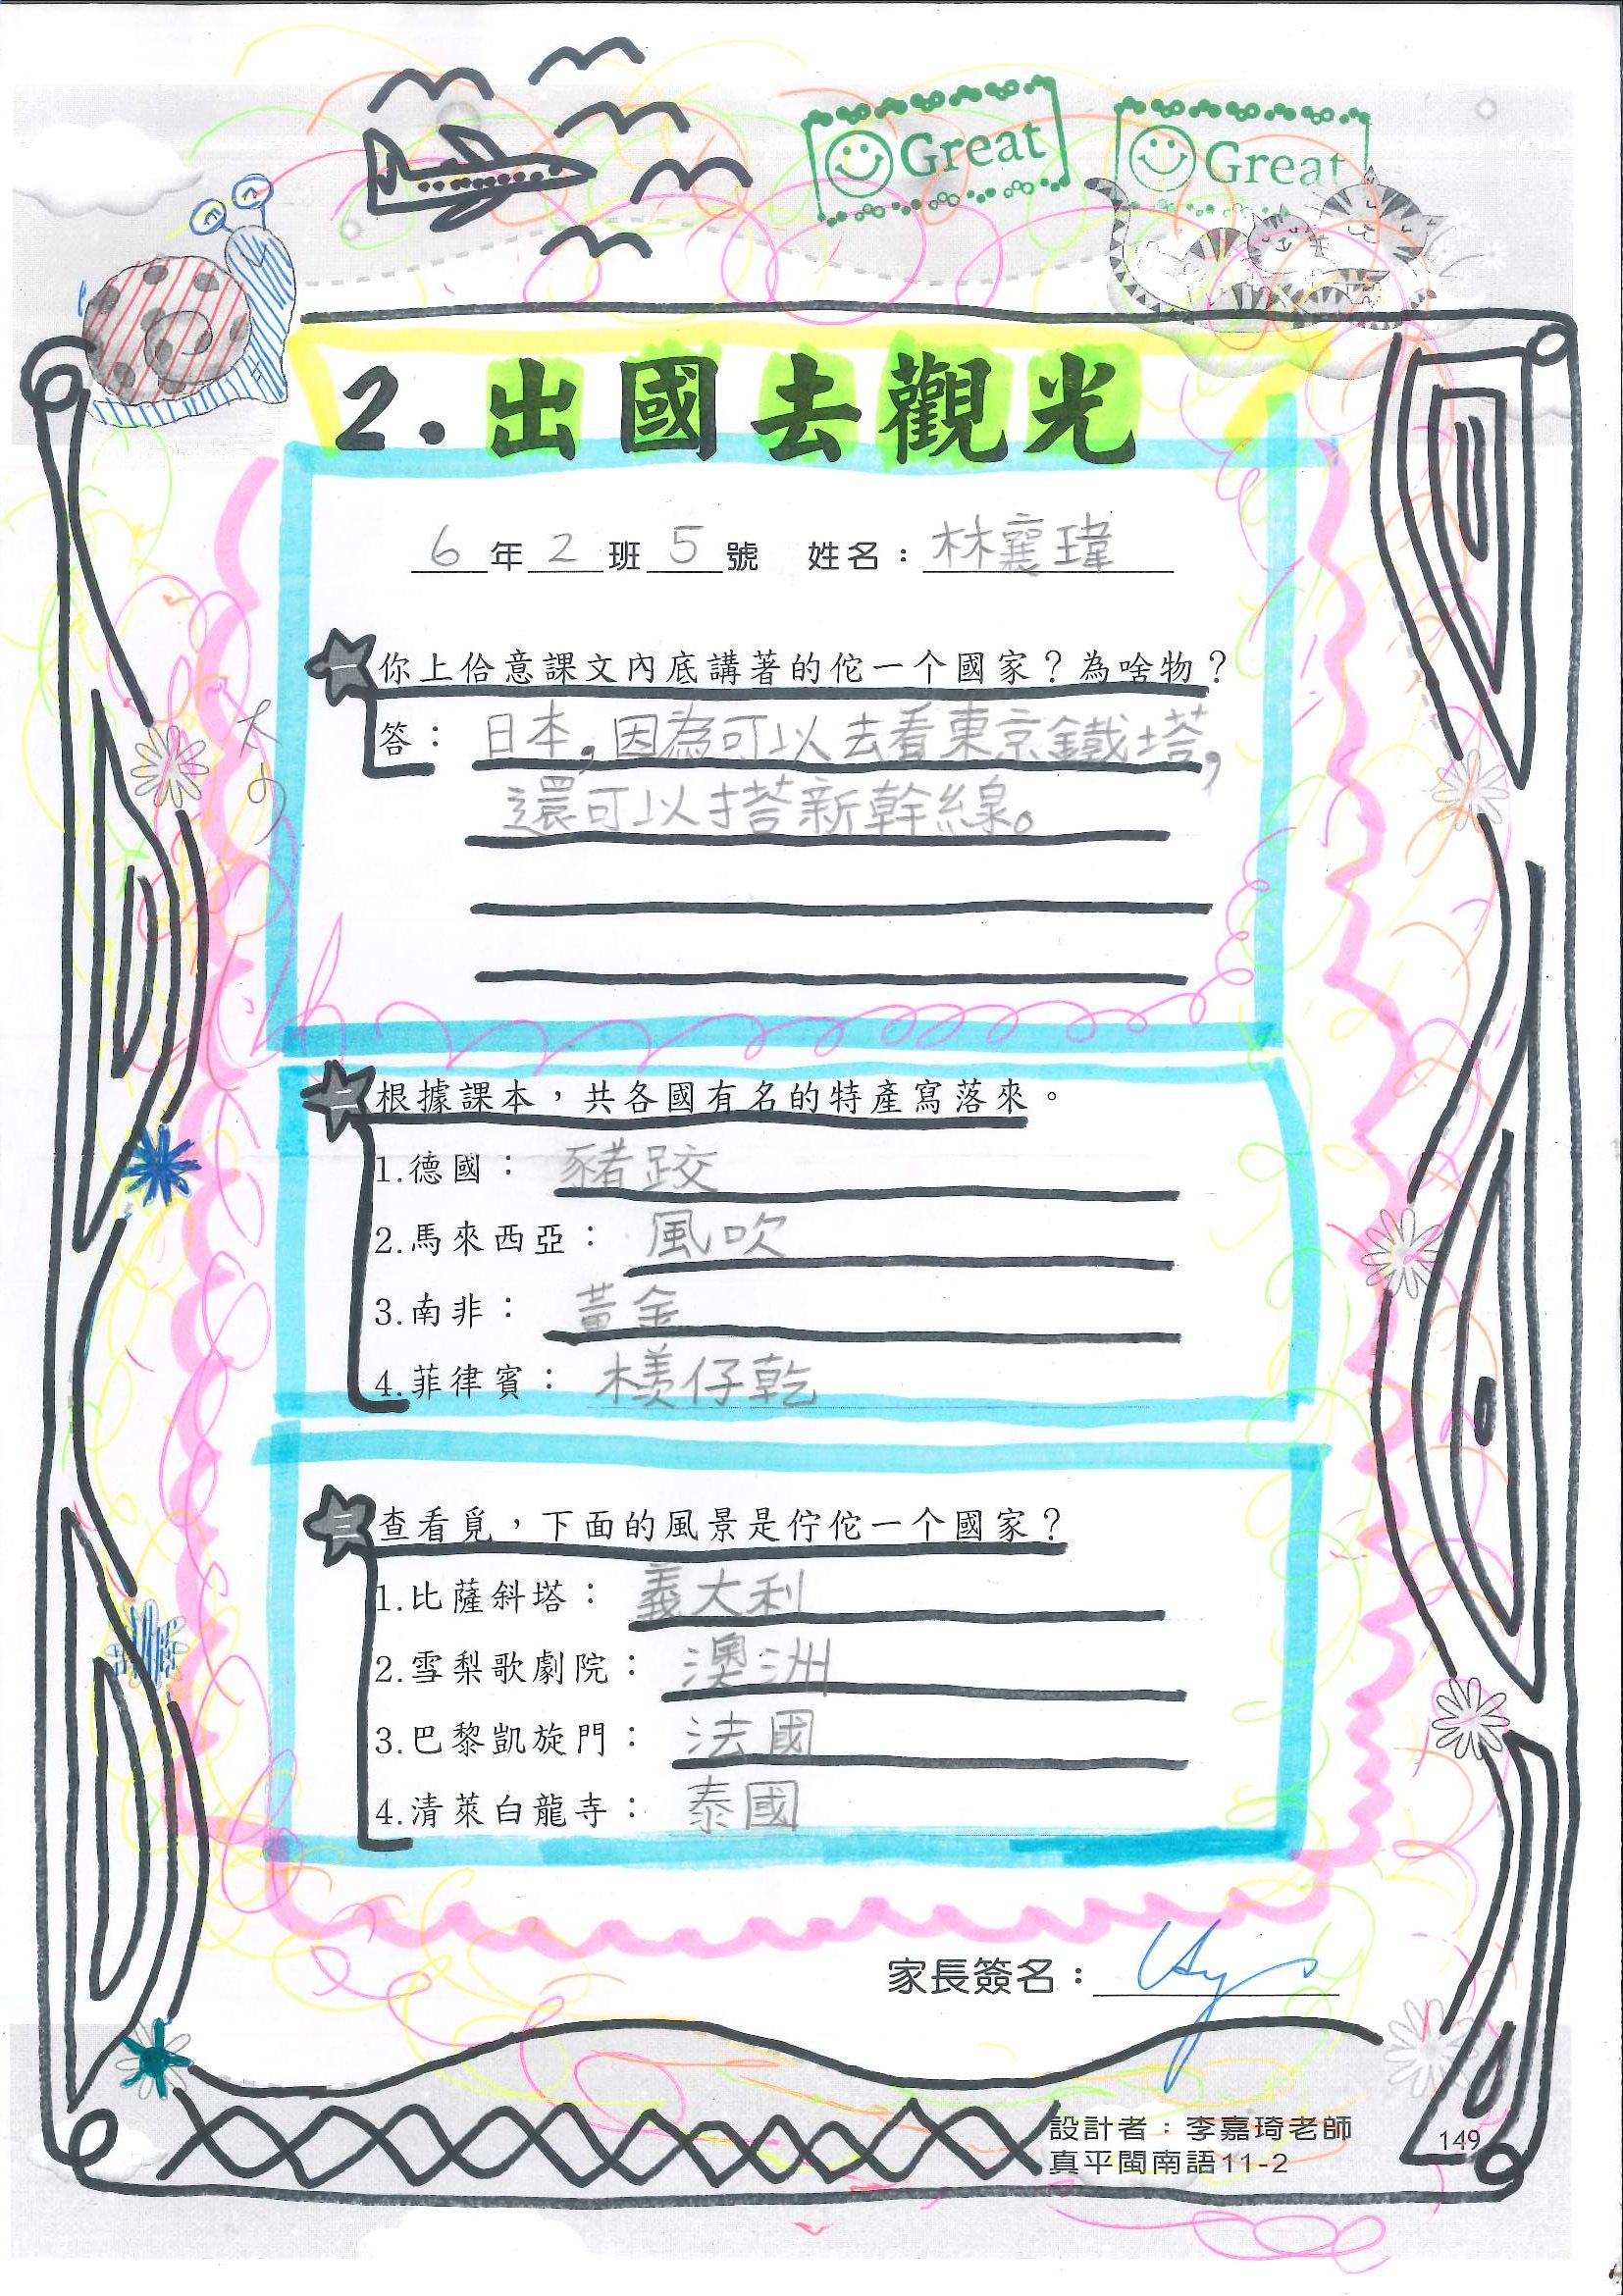 Great
Great
2.出國去觀光
6年2班5號 姓名：林襄瑋
一 你上佮意課文內底講著的佗一个國家？為啥物？
答：日本，因為可以去看東京鐵塔，
還可以搭新幹線。
二 根據課本，共各國有名的特產寫落來。
1.德國：豬跤
2.馬來西亞：風吹
3.南非：黃金
4.菲律賓：檨仔乾
三 查看覓，下面的風景是佇佗一个國家？
1.比薩斜塔：義大利
2.雪梨歌劇院：澳洲
3.巴黎凱旋門：法國
4.清萊白龍寺：泰國
家長簽名：
設計者：李嘉琦老師
真平閩南語11-2
149